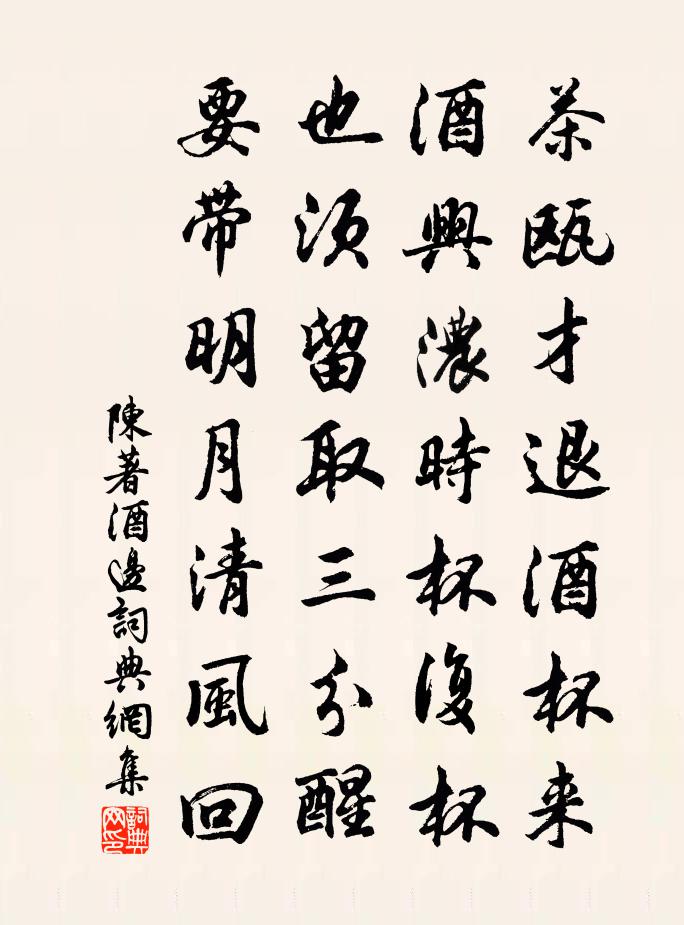 茶瓯才退酒杯来
酒興濃時杯復杯
也须留取三分醒
要带明月清風回
陳著酒邊詞典網集
詞典網印